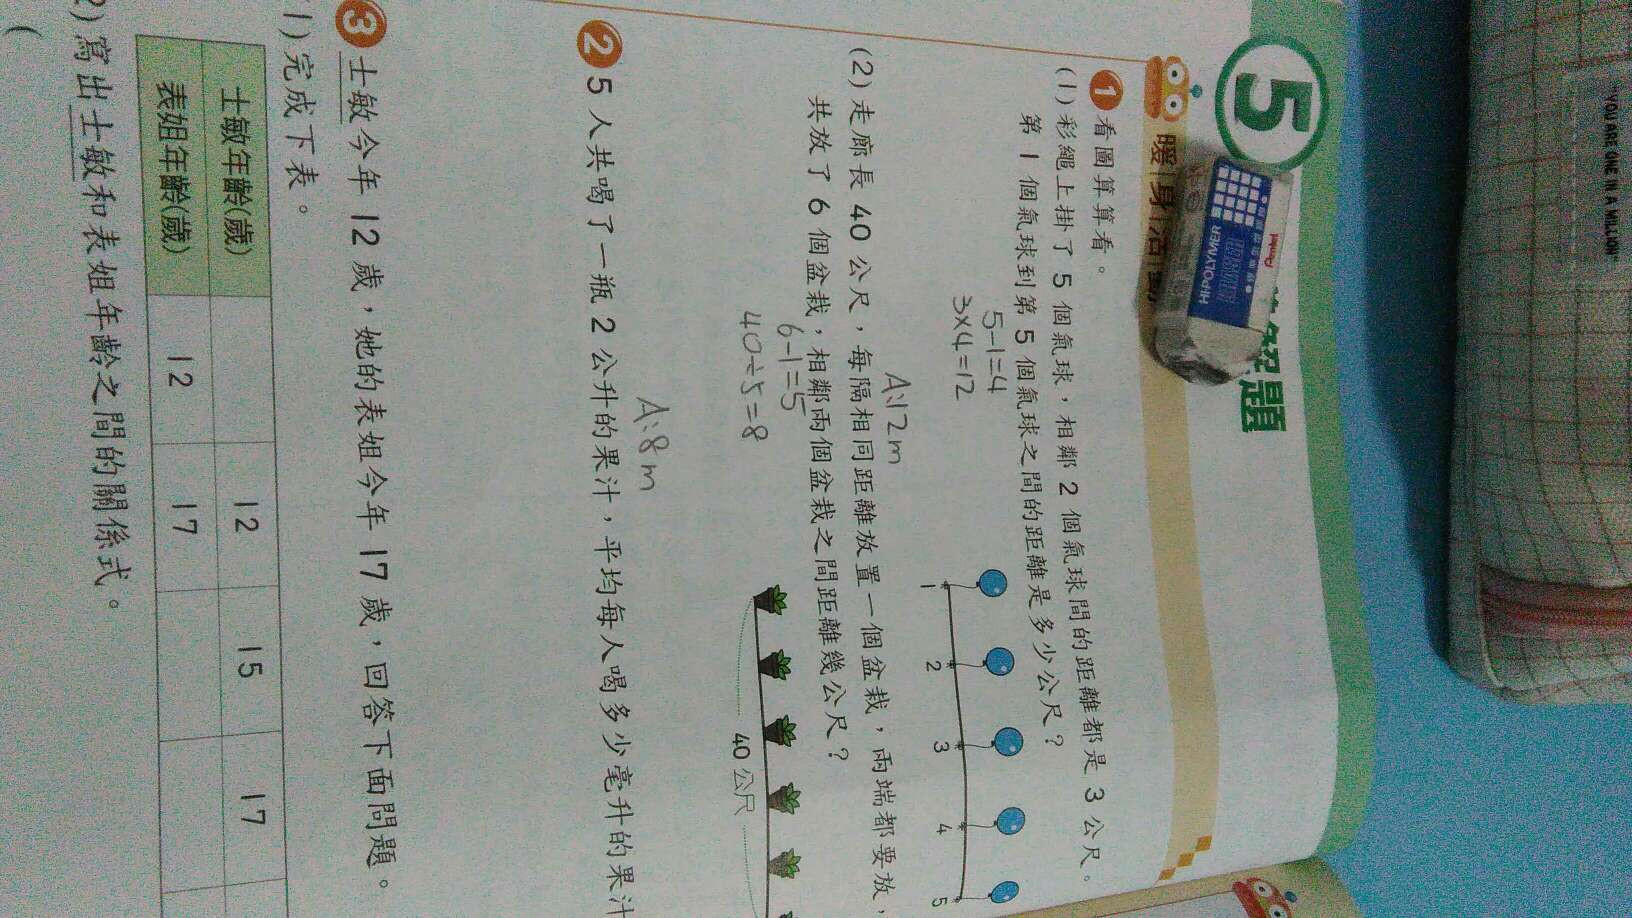 5
題
暖身活
1 看圖算算看。
(1)彩繩上掛了 5 個氣球，相鄰 2 個氣球間的距離都是 3 公尺。
第 1 個氣球到第 5 個氣球之間的距離是多少公尺？
5-1=4
3×4=12
A:12m
1 2 3 4 5
(2)走廊長 40 公尺，每隔相同距離放置一個盆栽，兩端都要放，
共放了 6 個盆栽，相鄰兩個盆栽之間距離幾公尺？
6-1=5
40÷5=8
A:8m
40 公尺
2 5 人共喝了一瓶 2 公升的果汁，平均每人喝多少毫升的果汁
3 士敏今年 12 歲，她的表姐今年 17 歲，回答下面問題。
(1)完成下表。
士敏年齡(歲) 12 15 17
表姐年齡(歲) 12 17
2)寫出士敏和表姐年齡之間的關係式。
(
Pentel
HI-POLYMER
ERASER
"YOU ARE ONE IN A MILLION"